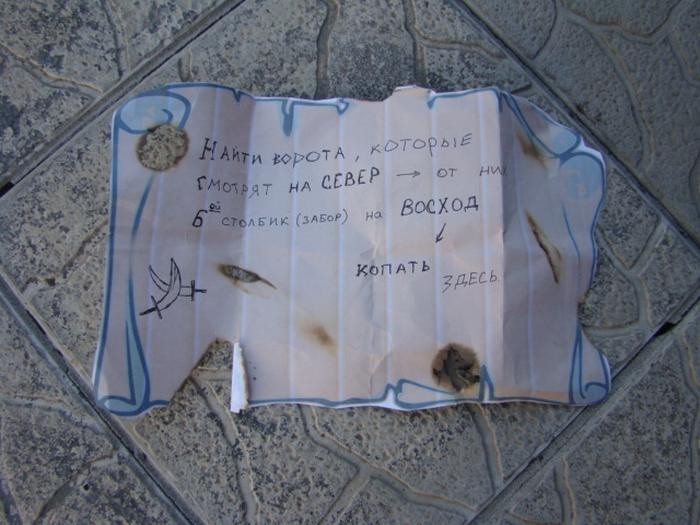 НАЙТИ ВОРОТА, КОТОРЫЕ
СМОТРЯТ НА СЕВЕР → ОТ НИХ
6ой СТОЛБИК (ЗАБОР) НА ВОСХОД
КОПАТЬ
ЗДЕСЬ.